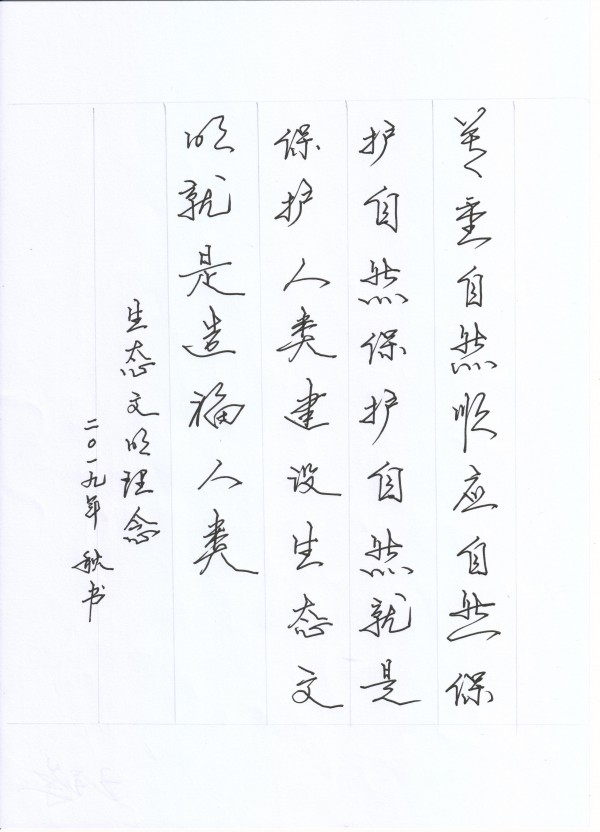 尊重自然顺应自然保
护自然保护自然就是
保护人类建设生态文
明就是造福人类
生态文明理念
二〇一九年秋书